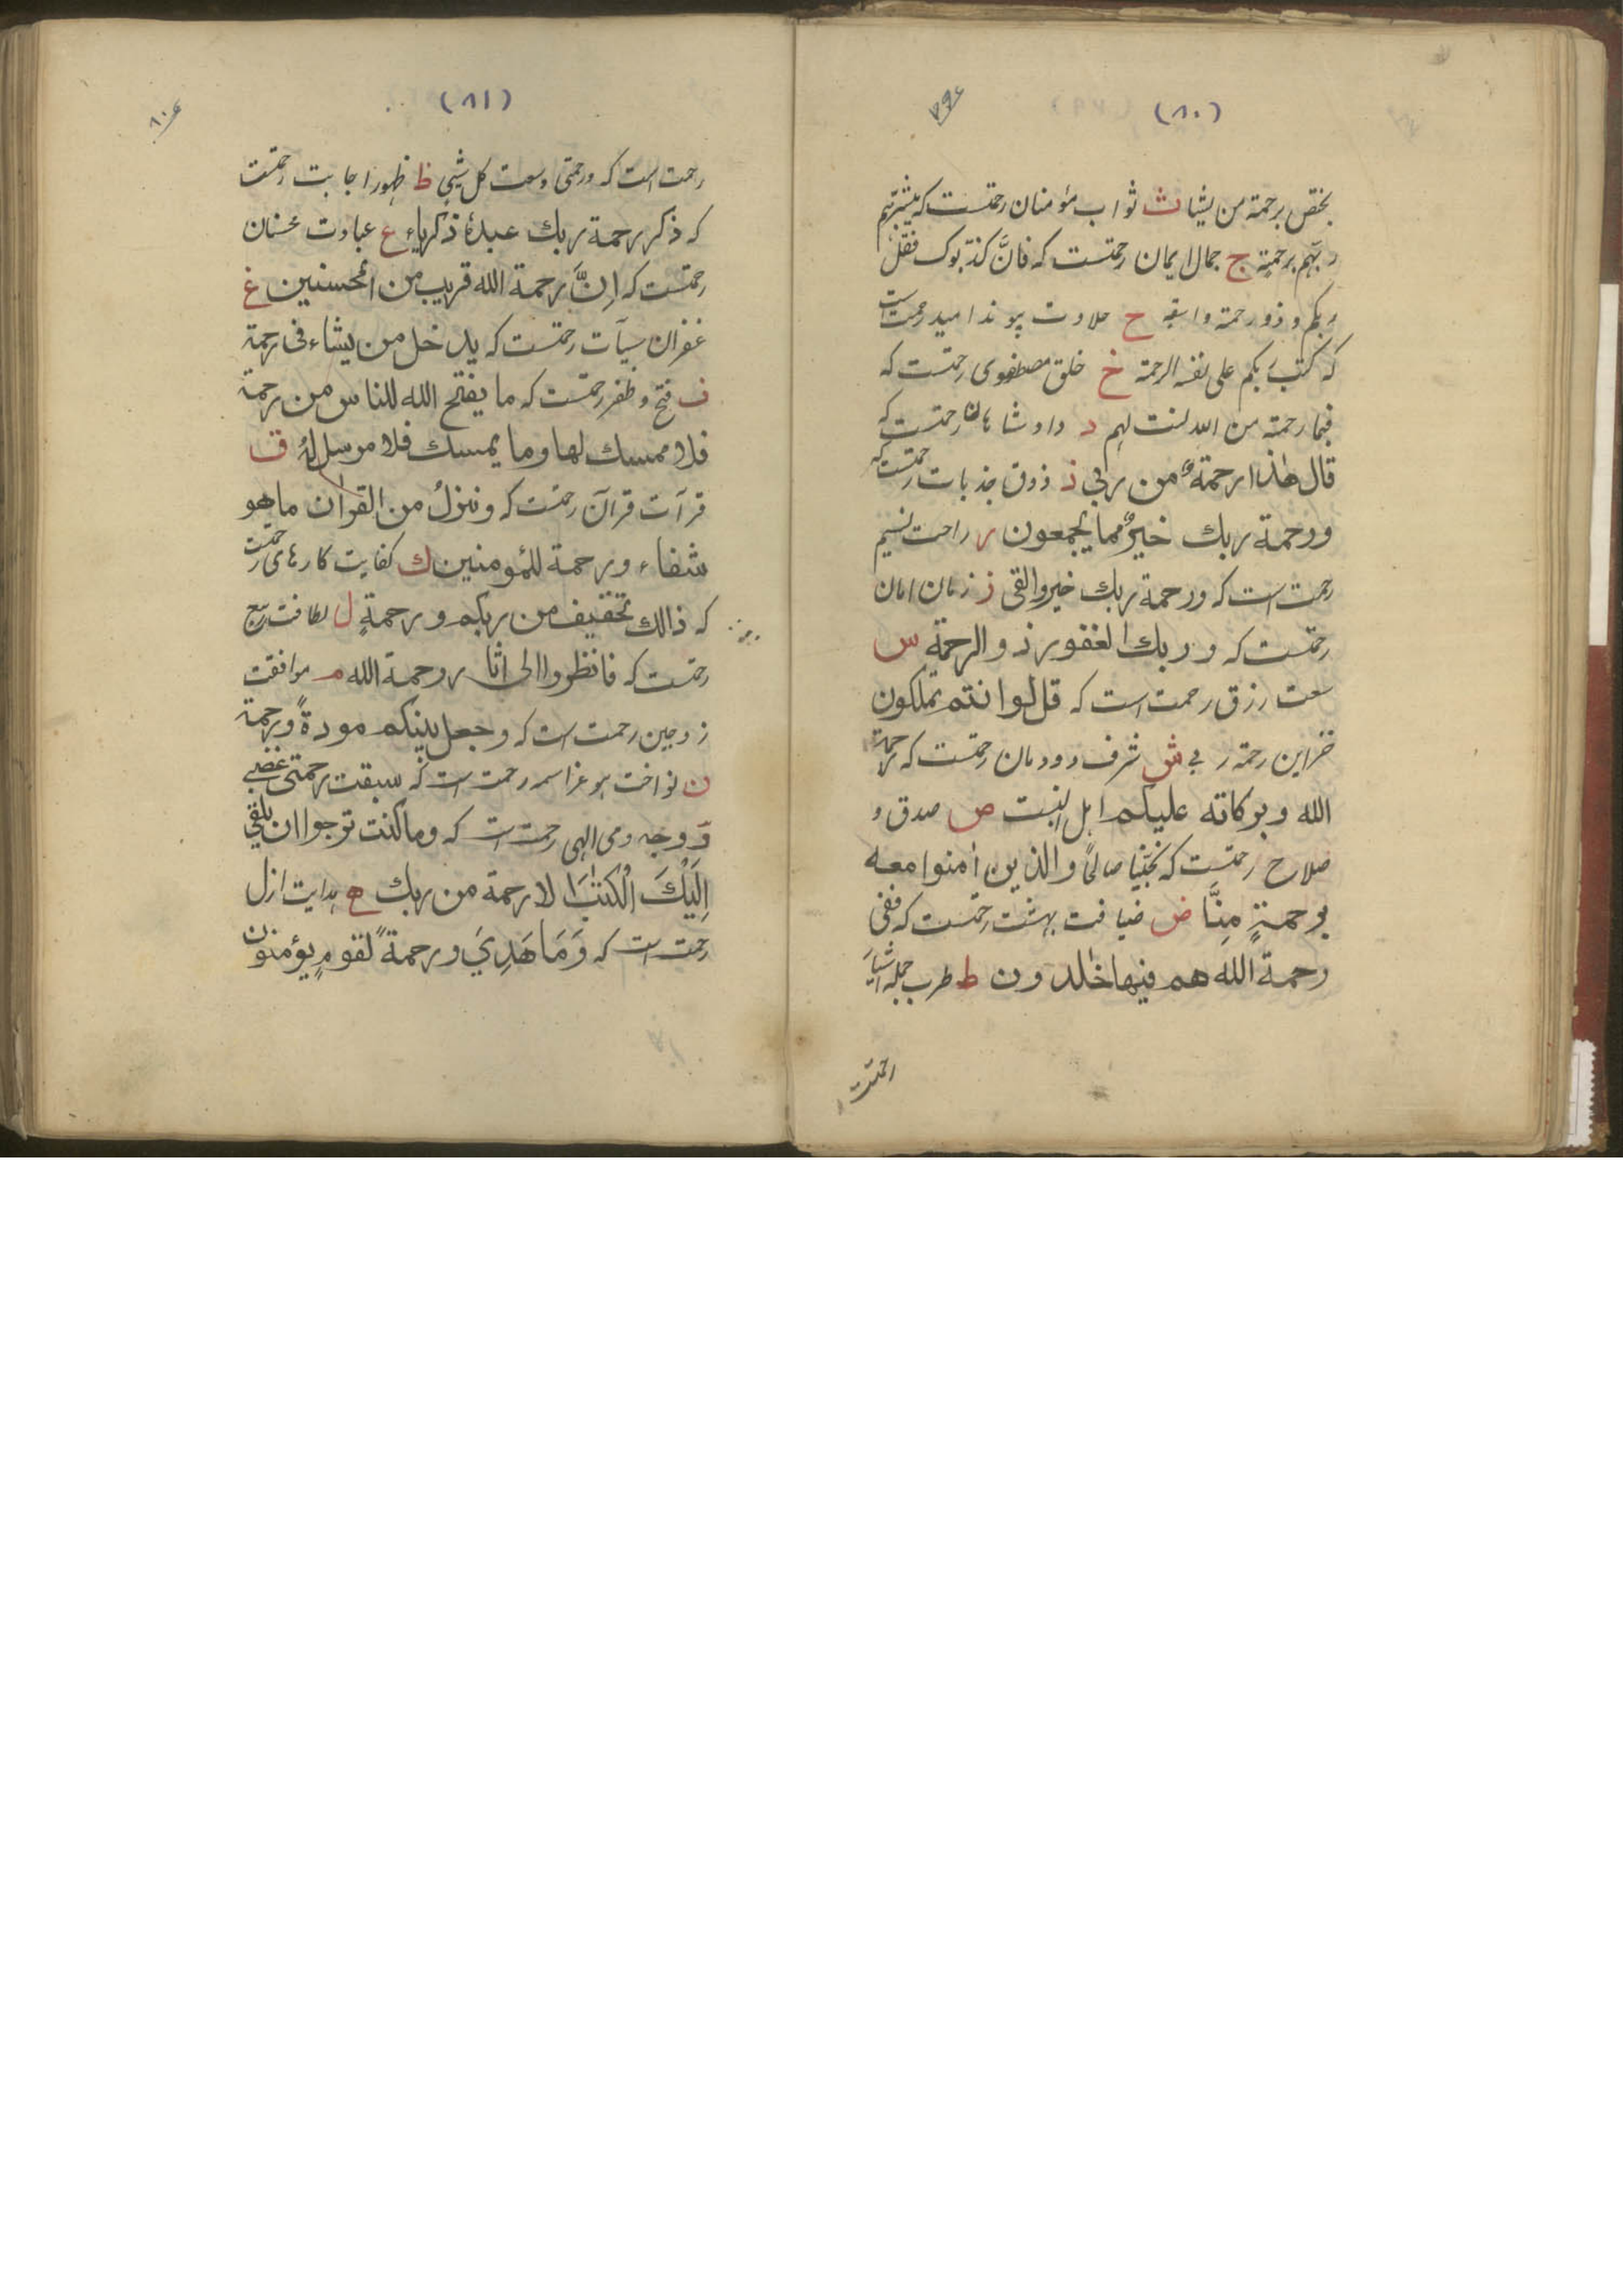 (۸۰)
یختص برحمة من یشا ث ثواب مؤمنان رحمتست که یبشرهم
ربهم برحمةٍ ج جمال ایمان رحمتست که فانَّ کذّبوک فقل
ربکم ذو رحمة واسعة ح حلاوت پیوند امید رحمت است
که کتب ربکم علی نفسه الرحمة خ خلق مصطفوی رحمتست که
فبما رحمة من الله لنت لهم د داد رحمتست که
قال هٰذا رحمةٌ من ربی ذ ذوق جذبات رحمتست که
ورحمة ربك خیرٌ مما یجمعون ر راحت نسیم
رحمت است که ورحمة ربك خیر وابقی ز زمان امان
رحمتست که وربك الغفور ذو الرحمة س
سعت رزق رحمت است که قل لوا نتم تملکون
خزاین رحمة ربی ش شرف دودمان رحمتست که رحمة
الله وبرکاته علیکم اهل البیت ص صدق و
صلاح رحمتست که نجّینا صالحاً والذین اٰمنوا معه
برحمةٍ مِنَّا ض ضیافت بهشت رحمتست که ففی
رحمة الله هم فیها خٰلدون ط طرب جمله اشیاء
رحمت
(۸۱)
رحمت است که ورحمتی وسعت کل شیٔ ظ ظهور اجابت رحمتست
که ذکر رحمة ربك عبدهٗ ذکریاء ع عبادت محسنان
رحمتست که اِنَّ رحمة الله قریب من المحسنین غ
غفران سیآت رحمتست که یدخل من یشاء فی رحمة
ف فتح و ظفر رحمتست که ما یفتح الله للناس من رحمة
فلا ممسك لها وما یمسك فلا مرسل لهٗ ق
قرآت قرآن رحمتست که وننزلُ من القراٰن ما هو
شفاء ورحمة للمؤمنین ك کفایت کارهای رحمتست
که ذالك تخفیف من ربکم ورحمةٍ ل لطافت ربیع
رحمتست که فانظروا الی اثار رحمة الله م موافقت
زوجین رحمت است که وجعل بینکم مودةً ورحمة
ن نواخت هو عز اسمه رحمت است که سبقت رحمتی غضبی
و وجه وحی الهی رحمت است که وما کنت ترجوا ان یلقی
اِلَیْكَ الْکِتٰبَ الا رحمة من ربك ه هدایت ازل
رحمت است که وَمَا هَدِیَ ورحمةً لقومٍ یؤمنون